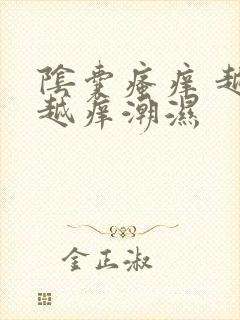 陰囊瘙痒越
越痒潮濕
金正淑